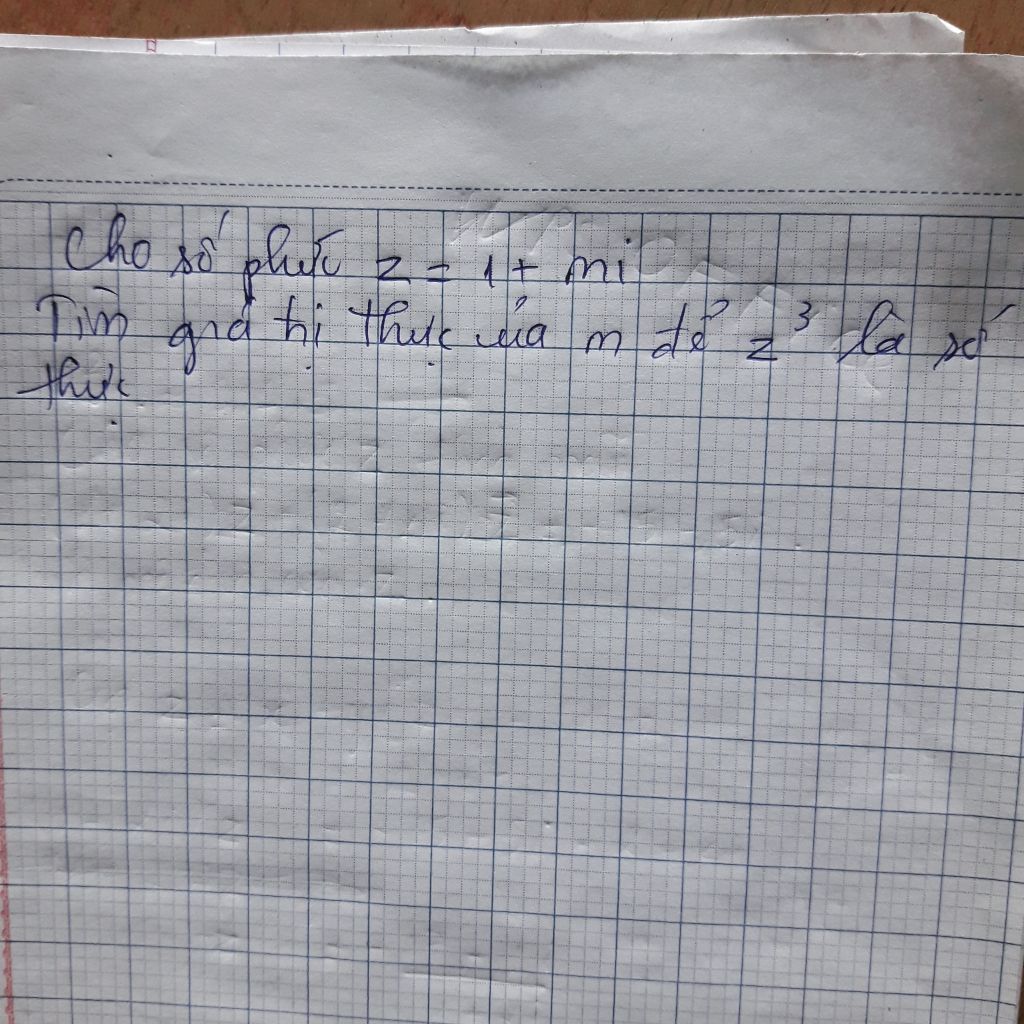 Cho số phức z = 1 + mi
Tìm giá trị thực của m để z³ là số
thực